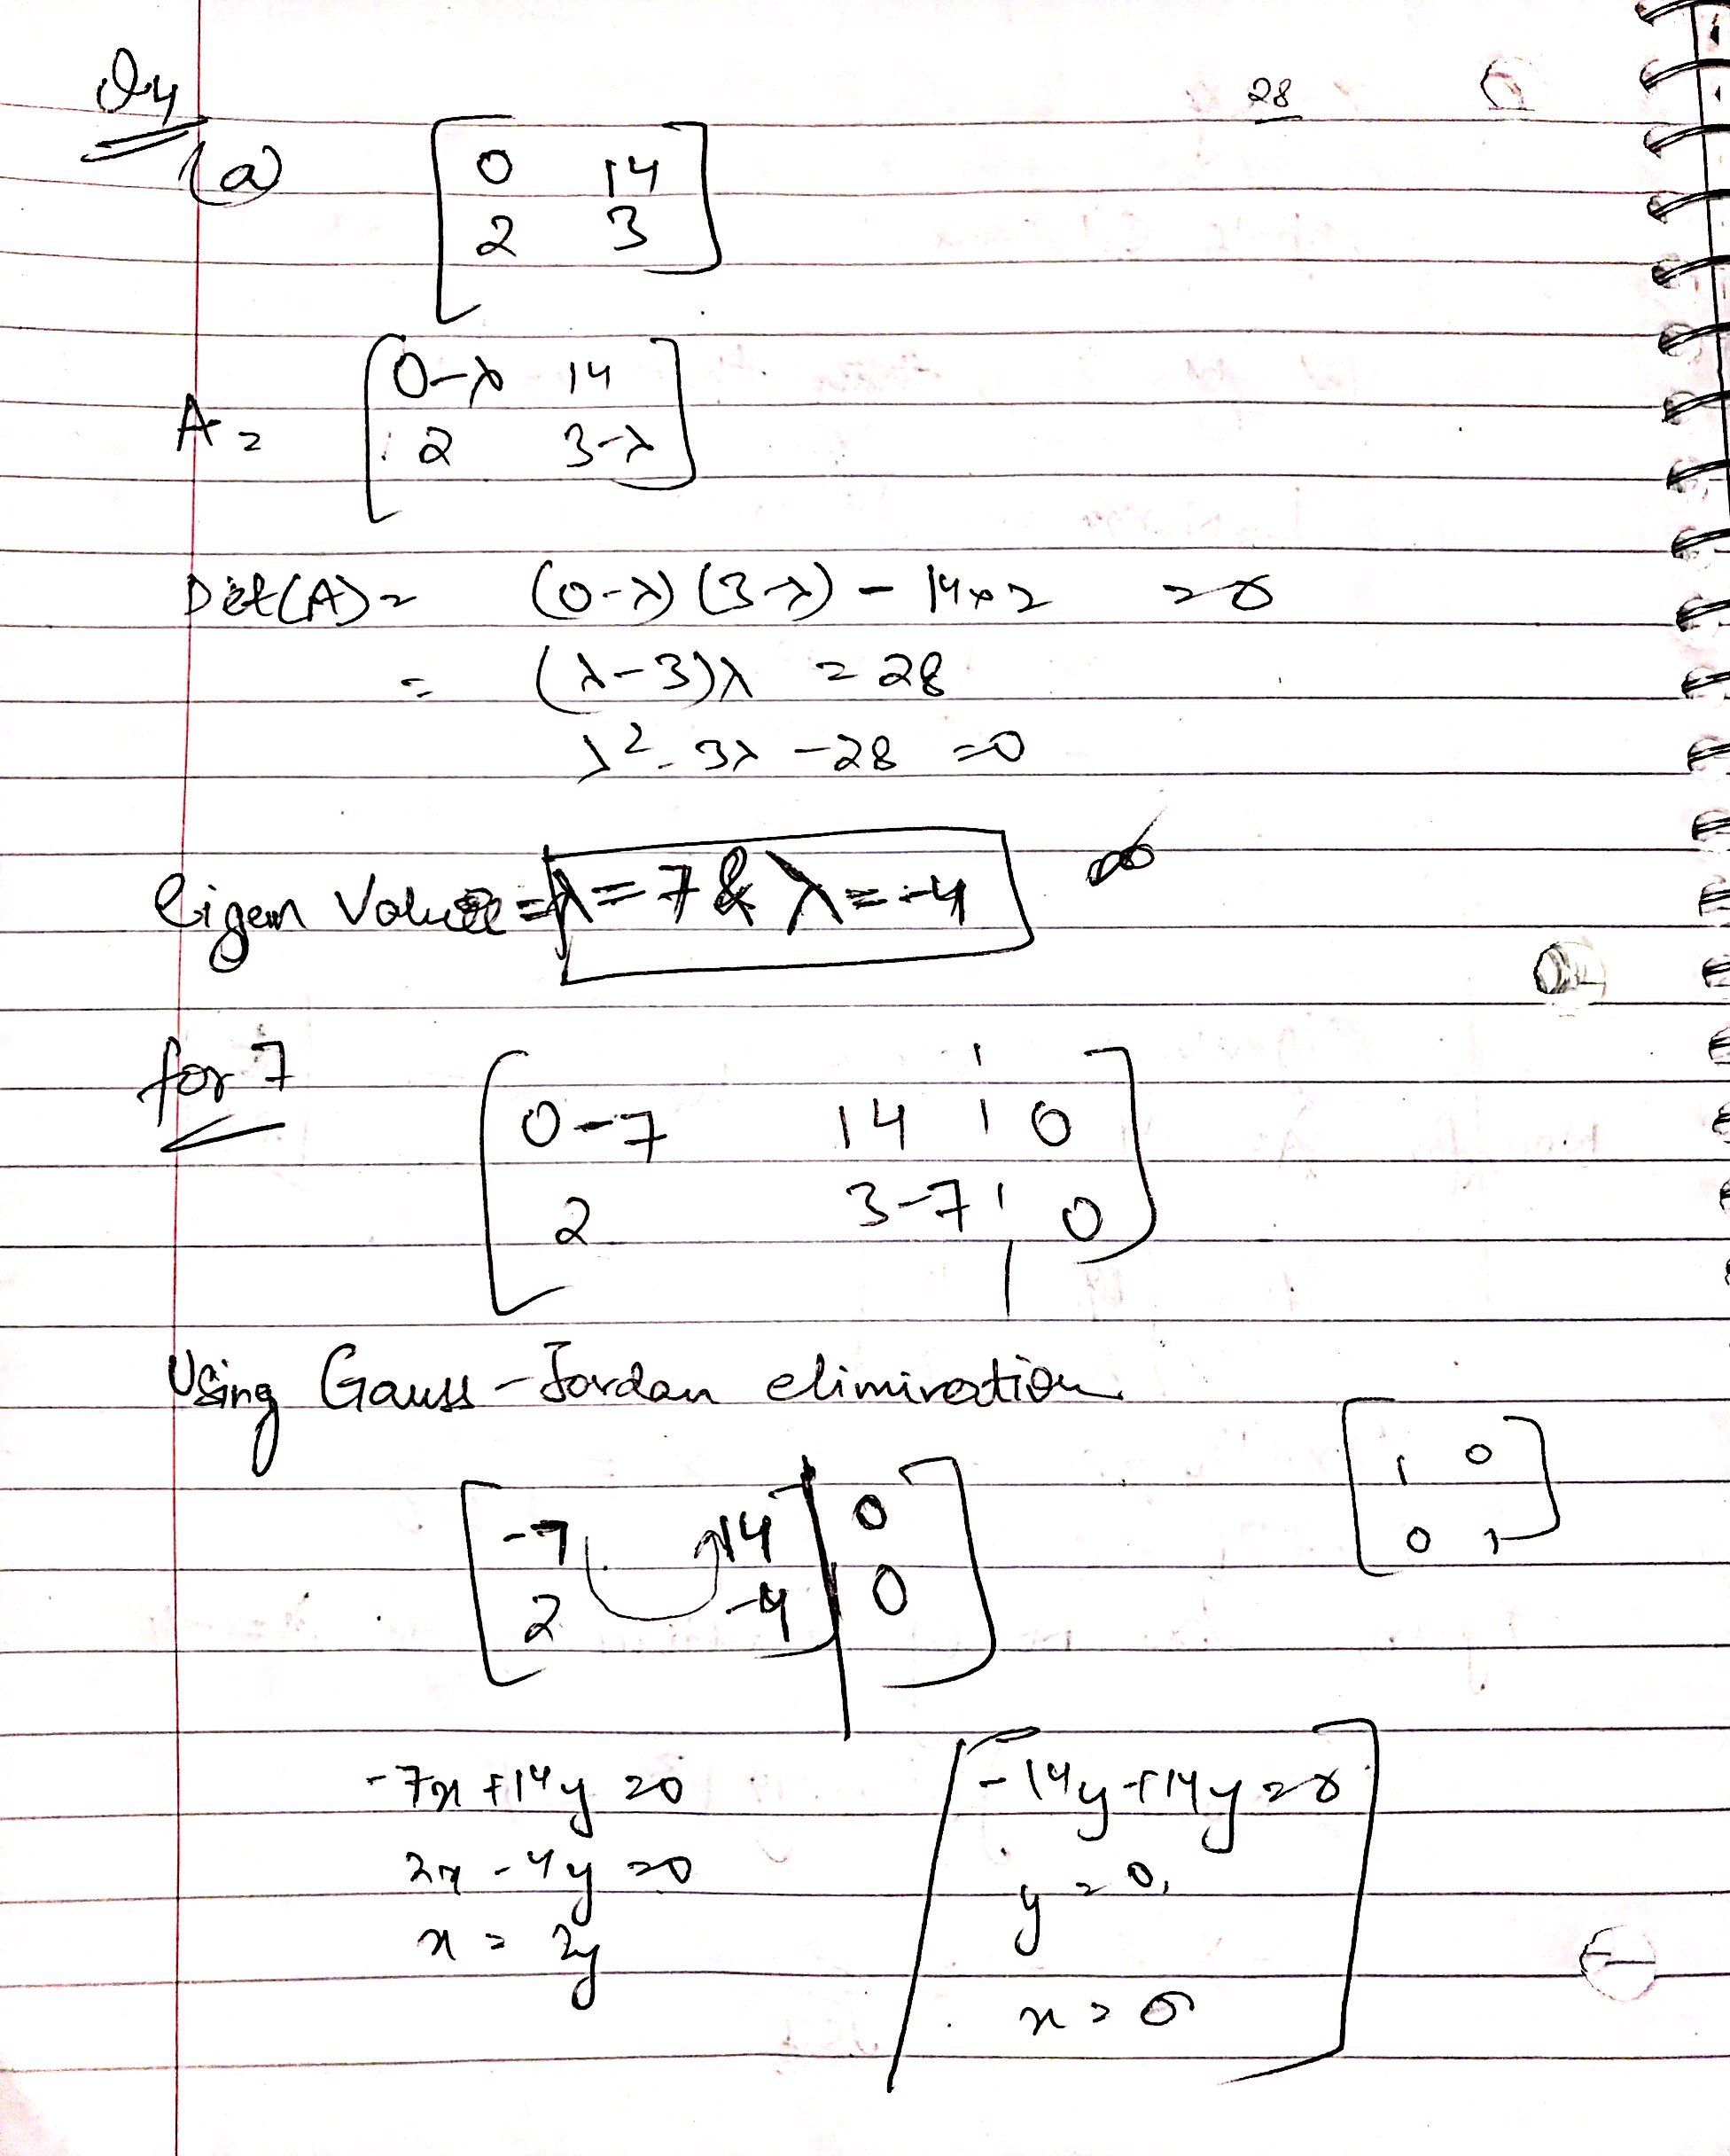 Q4
28
(a) [ 0 14
2 3 ]
A = [ 0-λ 14
2 3-λ ]
Det(A) = (0-λ) (3-λ) - 14×2 = 0
= (λ-3)λ = 28
λ² - 3λ - 28 = 0
Eigen Value = λ = 7 & λ = -4
for 7
[ 0-7 14 | 0
2 3-7 | 0 ]
Using Gauss-Jordan elimination
[ 1 0
0 1 ]
[ -7 14 | 0
2 -4 | 0 ]
-7x + 14y = 0
2x - 4y = 0
x = 2y
-14y + 14y = 0
y = 0,
x = 0